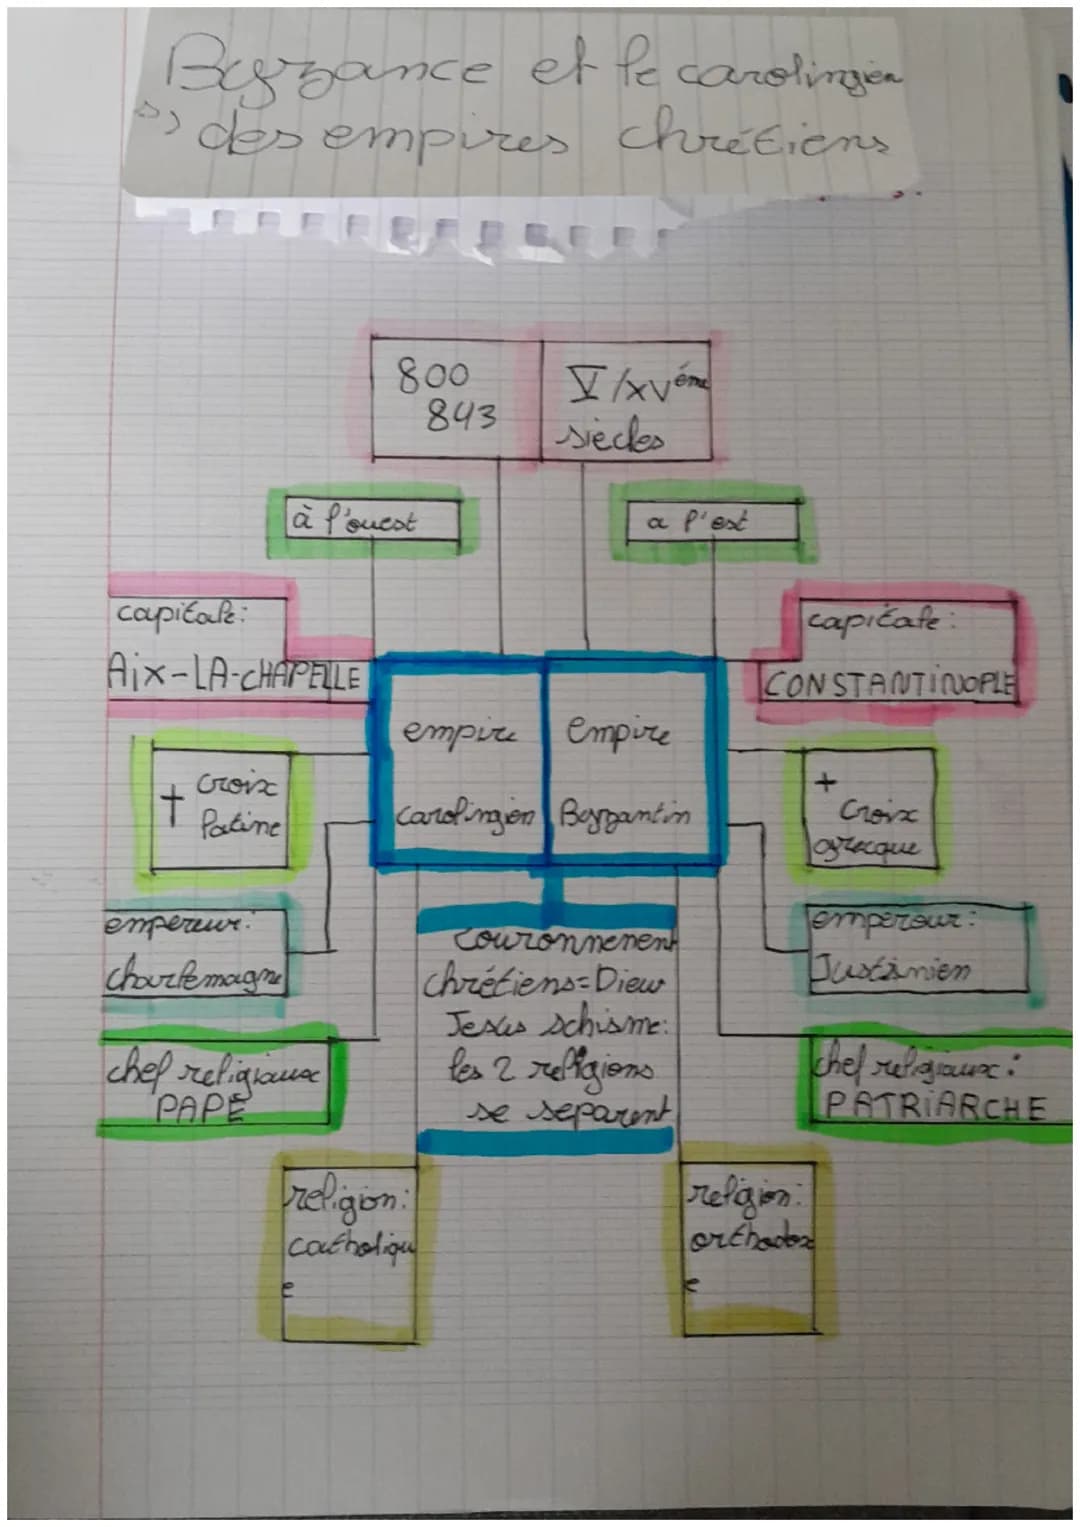 Byzance et le carolingien
des empires chrétiens
800
843
V/XVéme
siècles
à l'ouest
a l'est
capitale:
AiX-LA-CHAPELLE
capitale:
CONSTANTINOPLE
empire
carolingien
empire
Byzantin
croix
latine
+
Croix
grecque
empereur:
charlemagne
empereur:
Justinien
couronnement
chrétiens=Dieu
Jesus schisme:
les 2 religions
se separent
chef religiaux
PAPE
chef religiaux:
PATRiARCHE
religion:
catholiqu
e
religion:
orthodox
e